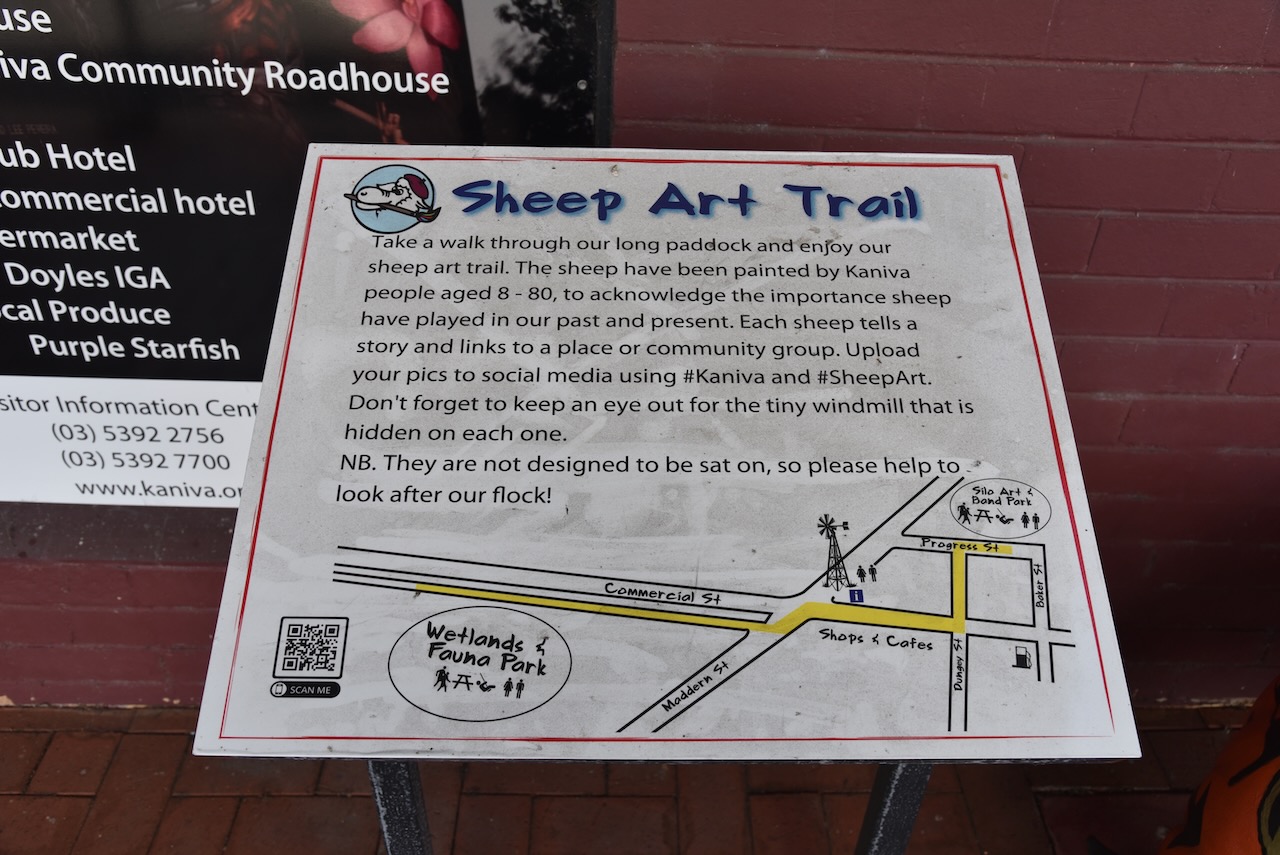 use
iva Community Roadhouse
ub Hotel
ommercial hotel
ermarket
Doyles IGA
cal Produce
Purple Starfish
sitor Information Cent
(03) 5392 2756
(03) 5392 7700
www.kaniva.or
Sheep Art Trail
Take a walk through our long paddock and enjoy our
sheep art trail. The sheep have been painted by Kaniva
people aged 8 - 80, to acknowledge the importance sheep
have played in our past and present. Each sheep tells a
story and links to a place or community group. Upload
your pics to social media using #Kaniva and #SheepArt.
Don't forget to keep an eye out for the tiny windmill that is
hidden on each one.
NB. They are not designed to be sat on, so please help to
look after our flock!
Silo Art &
Band Park
Progress St
Baker St
Commercial St
i
Shops & Cafes
Dungey St
Maddern St
Wetlands &
Fauna Park
SCAN ME